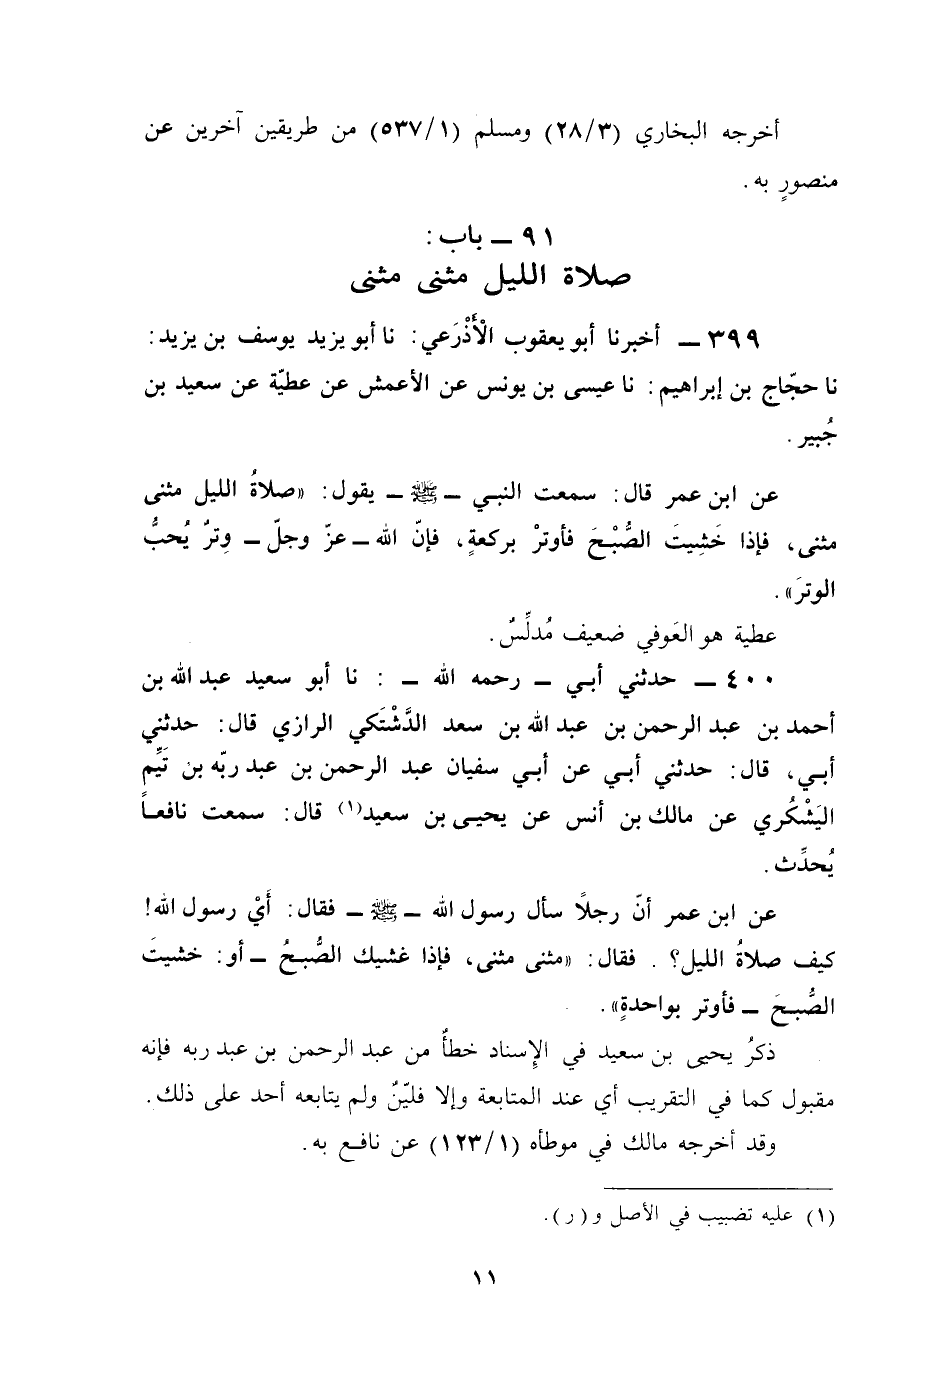 أخرجه البخاري (٢٨/٣) ومسلم (٥٣٧/١) من طريقين آخرين عن
منصورٍ به.
٩١ ــ باب:
صلاة الليل مثنى مثنى
٣٩٩ ــ أخبرنا أبو يعقوب الْأَذْرَعي: نا أبو يزيد يوسف بن يزيد:
نا حجّاج بن إبراهيم: نا عيسى بن يونس عن الأعمش عن عطيّة عن سعيد بن
جُبير.
عن ابن عمر قال: سمعت النبي ــ ﷺ ــ يقول: «صلاةُ الليل مثنى
مثنى، فإذا خَشِيتَ الصُّبْحَ فأوترْ بركعةٍ، فإنّ الله ــ عزّ وجلّ ــ وِترٌ يُحبُّ
الوترَ».
عطية هو العَوفي ضعيف مُدلِّسٌ.
٤٠٠ ــ حدثني أبي ــ رحمه الله ــ : نا أبو سعيد عبد الله بن
أحمد بن عبد الرحمن بن عبد الله بن سعد الدَّشْتَكي الرازي قال: حدثني
أبي، قال: حدثني أبي عن أبي سفيان عبد الرحمن بن عبد ربّه بن تَيِّم
اليَشْكُري عن مالك بن أنس عن يحيى بن سعيد(١) قال: سمعت نافعاً
يُحدِّث.
عن ابن عمر أنّ رجلاً سأل رسول الله ــ ﷺ ــ فقال: أَيْ رسول الله!
كيف صلاةُ الليل؟ . فقال: «مثنى مثنى، فإذا غشيك الصُّبحُ ــ أو: خشيتَ
الصُّبحَ ــ فأوتر بواحدةٍ».
ذكرُ يحيى بن سعيد في الإسناد خطأٌ من عبد الرحمن بن عبد ربه فإنه
مقبول كما في التقريب أي عند المتابعة وإلا فليّنٌ ولم يتابعه أحد على ذلك.
وقد أخرجه مالك في موطأه (١٢٣/١) عن نافع به.
(١) عليه تضبيب في الأصل و(ر).
١١